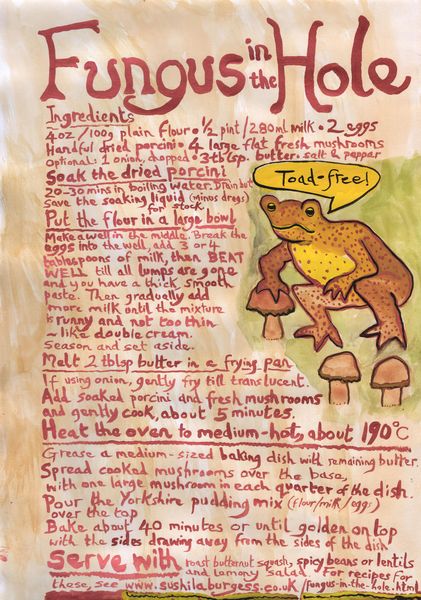 Fungus in the Hole
Ingredients
4oz/100g plain flour • ½ pint/280ml milk • 2 eggs
Handful dried porcini • 4 large flat fresh mushrooms
Optional: 1 onion, chopped • 3 tblsp. butter. salt & pepper
Soak the dried porcini
20-30 mins in boiling water. Drain but
save the soaking liquid (minus dregs)
for stock.
Put the flour in a large bowl
Make a well in the middle. Break the
eggs into the well, add 3 or 4
tablespoons of milk, then BEAT
WELL till all lumps are gone
and you have a thick, smooth
paste. Then gradually add
more milk until the mixture
is runny and not too thin
~ like double cream.
Season and set aside.
Toad-free!
Melt 2 tblsp butter in a frying pan
If using onion, gently fry till translucent.
Add soaked porcini and fresh mushrooms
and gently cook, about 5 minutes.
Heat the oven to medium-hot, about 190°C
Grease a medium-sized baking dish with remaining butter.
Spread cooked mushrooms over the base,
with one large mushroom in each quarter of the dish.
Pour the Yorkshire pudding mix (flour/milk/eggs)
over the top
Bake about 40 minutes or until golden on top
with the sides drawing away from the sides of the dish
Serve with roast butternut squash, spicy beans or lentils
and lemony salad ~ For recipes for
these, see www.sushilaburgess.co.uk/fungus-in-the-hole.html